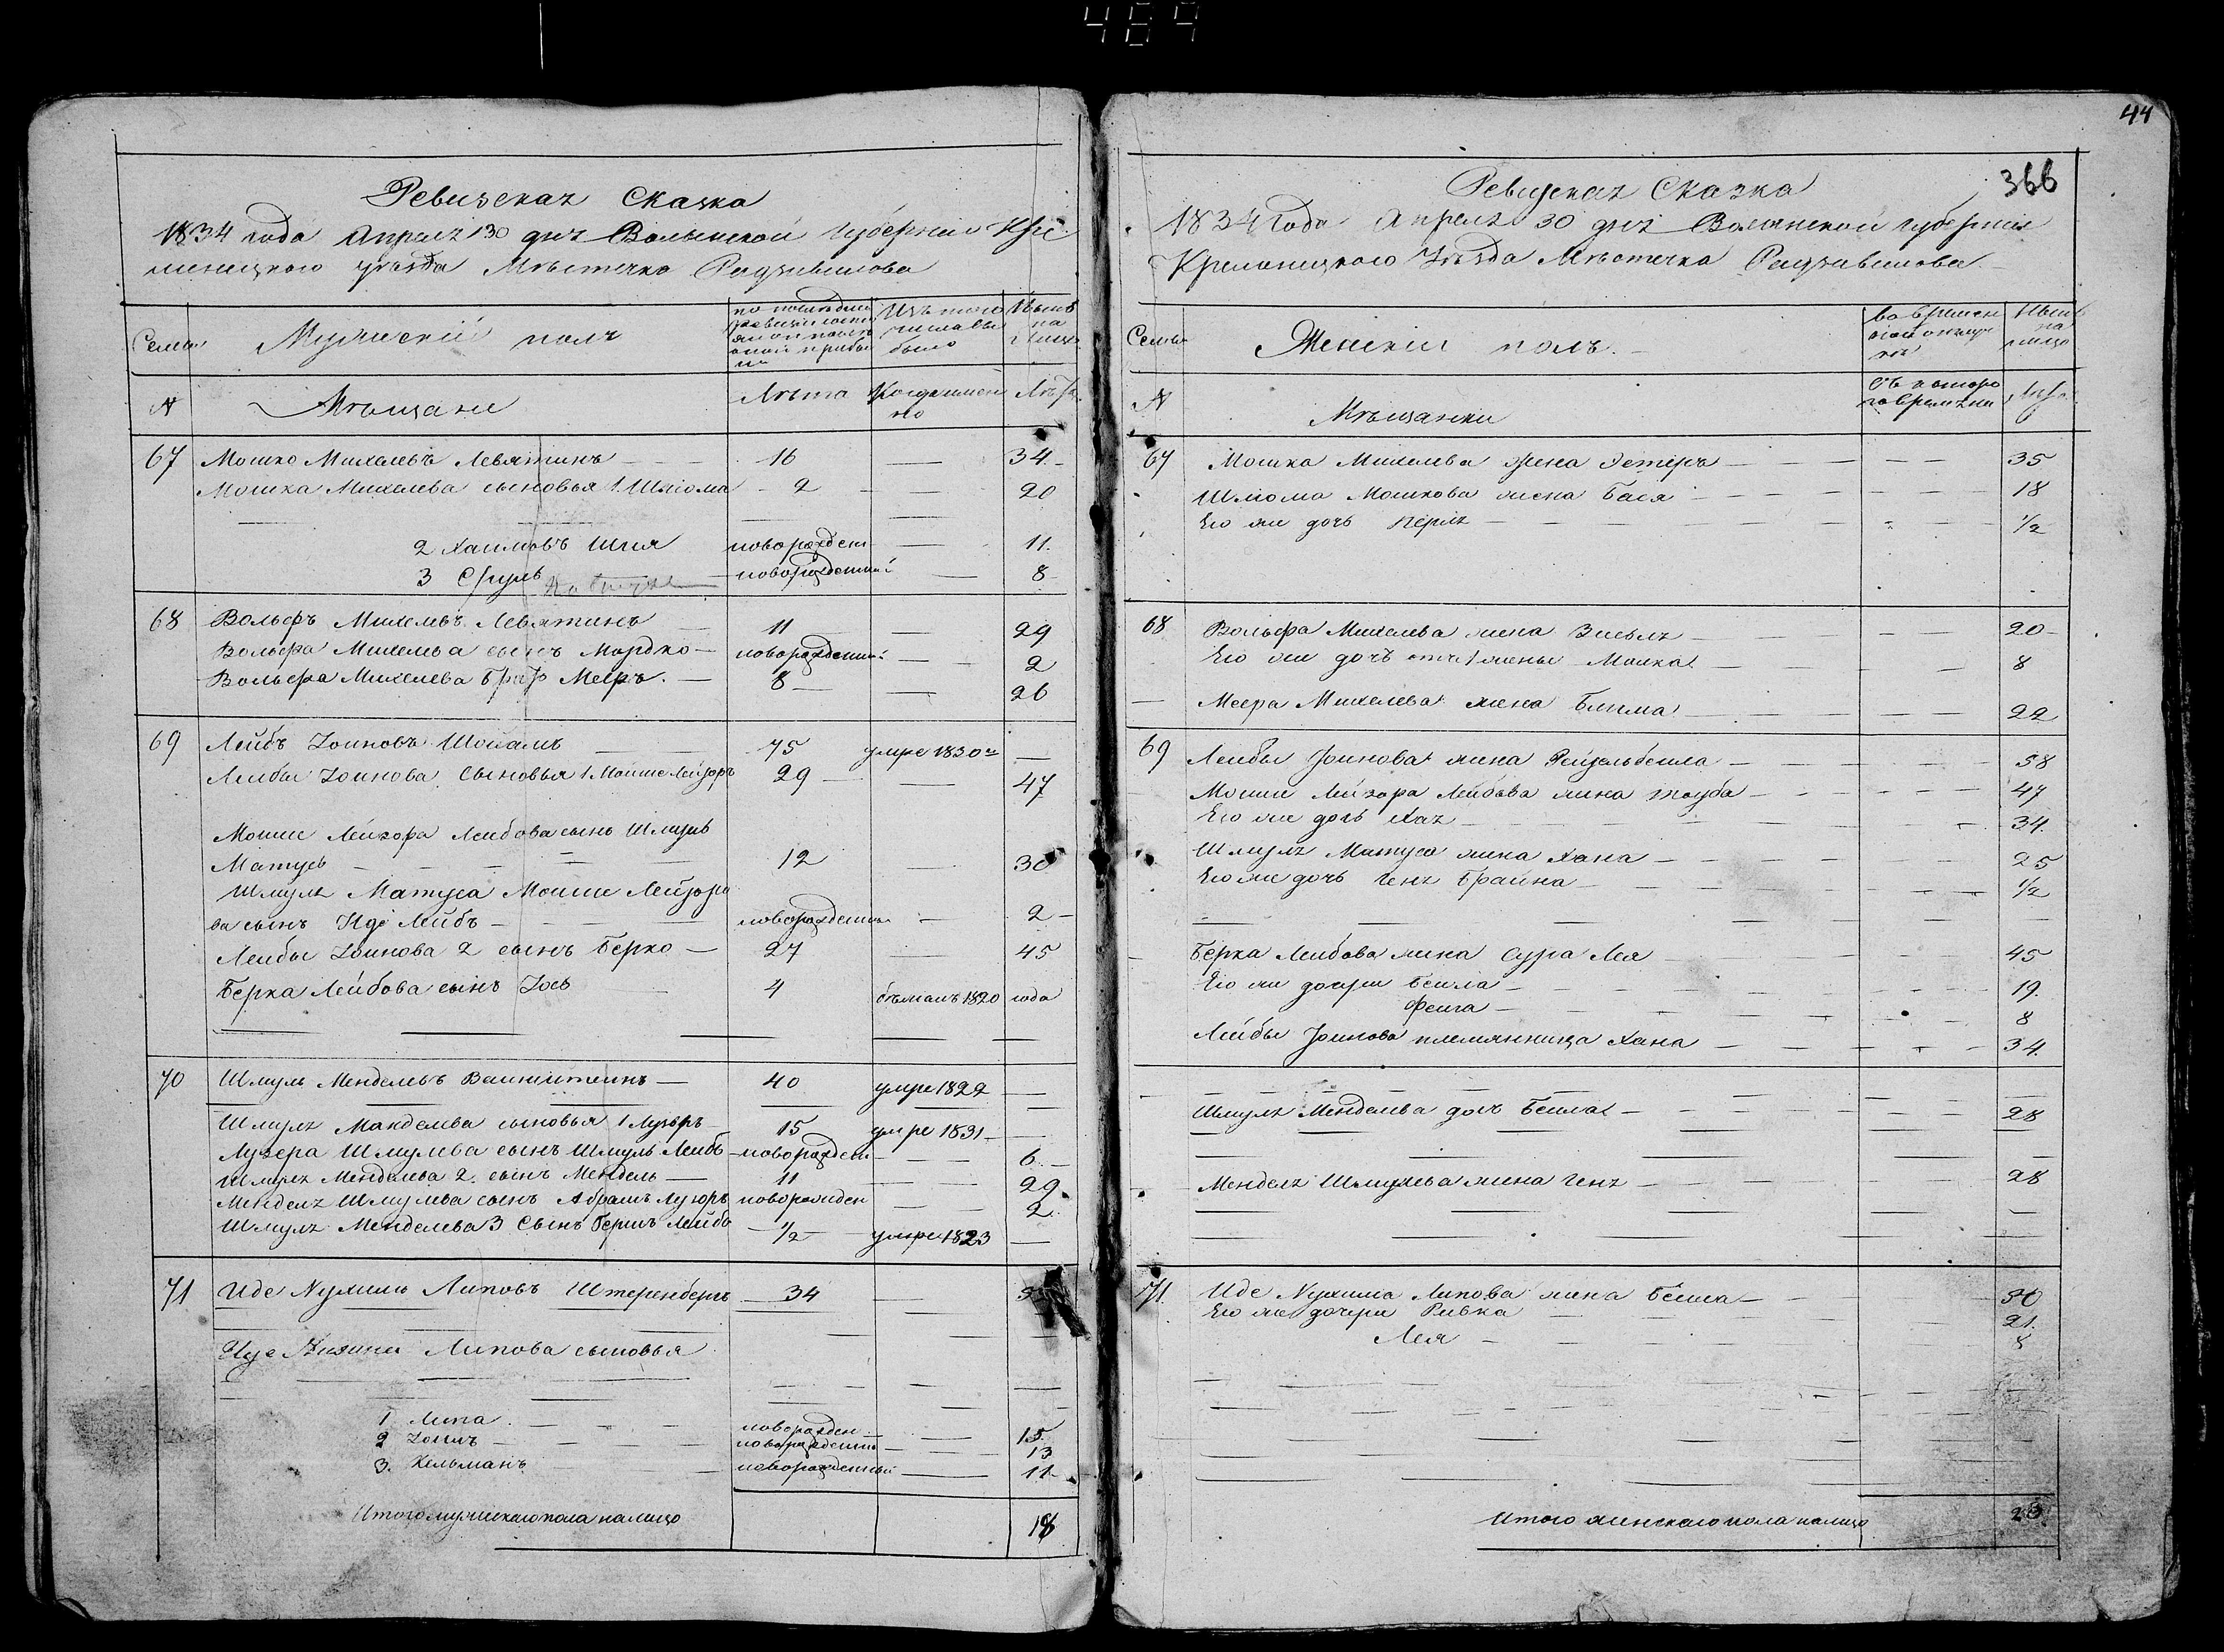 489
44
Ревизская Сказка
1834 года Апреля 30 дня Волынской Губернии Кре
менецкого уѣзда Мѣстечка Радзивилова
Семьи
Мужеский полъ
по последней ревизии состояло и после оной прибыло
Изъ того числа выбыло
Нынѣ на лицо
№
Мѣщане
Лѣта
Когда имен но
Лѣта
67 Мошко Михелевъ Левятинъ 16 — 34
Мошка Михелева сыновья 1. Шліома 2 — 20
2 Хаимовъ Шія новорожден — 11
3 Сруль новорожденный — 8
68 Вольфъ Михелевъ Левятинъ 11 — 29
Вольфа Михелева сынъ Мордко новорожденный — 2
Вольфа Михелева братъ Меиръ 8 — 26
69 Лейбъ Іоиновъ 75 умре 1830 —
Лейбы Іоинова Сыновья 1 Мошше Лейзоръ 29 — 47
Мошше Лейзора Лейбова сынъ Шмуль
Матусъ 12 30
Шмуля Матуса Мошше Лейзоро
ва сынъ Лейбъ новорожденны — 2
Лейбы Іоинова 2 сынъ Берко 27 — 45
Берка Лейбова сынъ Іось 4 бѣжалъ 1820 года
70 Шмуль Менделевъ Ваинштеинъ 40 умре 1822 —
Шмуля Манделева сыновья 1 Лузеръ 15 умре 1831 —
Лузера Шмулева сынъ Шмуль Лейбъ новорожден — 6
Шмуля Менделева 2 сынъ Мендель 11 — 29
Менделя Шмулева сынъ Абрамъ Лузоръ новорожден — 2
Шмуля Менделева 3 Сынъ Гершъ Лейбъ 1/2 умре 1823 —
71 Иде Нухимъ Липовъ Штеренберъ 34 —
Липова сыновья
1 Липа новорожден — 15
2 новорожденны — 13
3. Кельманъ новорожденный — 11
Итого мужескаго пола налицо 18
Ревизская Сказка 366
1834 Года Апреля 30 дня Волынской губернии
Кременецкого Уѣзда Мѣстечка Радзивилова
Семьи
Женский полъ.
во временной отлучке
Нынѣ на лицо
№
Мѣщанки
Съ котораго времени
Лѣта
67 Мошка Михелева жена Эстеръ 35
Шліома Мошкова жена Бася 18
Его же дочь Перля 1/2
68 Вольфа Михелева жена 20
Его же дочь отъ 1 жены Молка 8
Меера Михелева жена Блима 22
69 Лейбы Іоинова жена Рейзельбеила 58
Мошше Лейзора Лейбова жена Тауба 47
Его же дочь Хая 34
Шмуля Матуса жена Хана 25
Его же дочь Геня Браина 1/2
Берка Лейбова жена Сура Лея 45
Его же дочери Беила 19
Феига 8
Лейбы Іоинова племянница Хана 34
Шмуля Менделева дочь Беила 28
Менделя Шмулева жена Геня 28
71 Иде Нухима Липова жена Беила 50
Его же дочери Ривка 21
Лея 8
Итого женскаго пола налицо 20